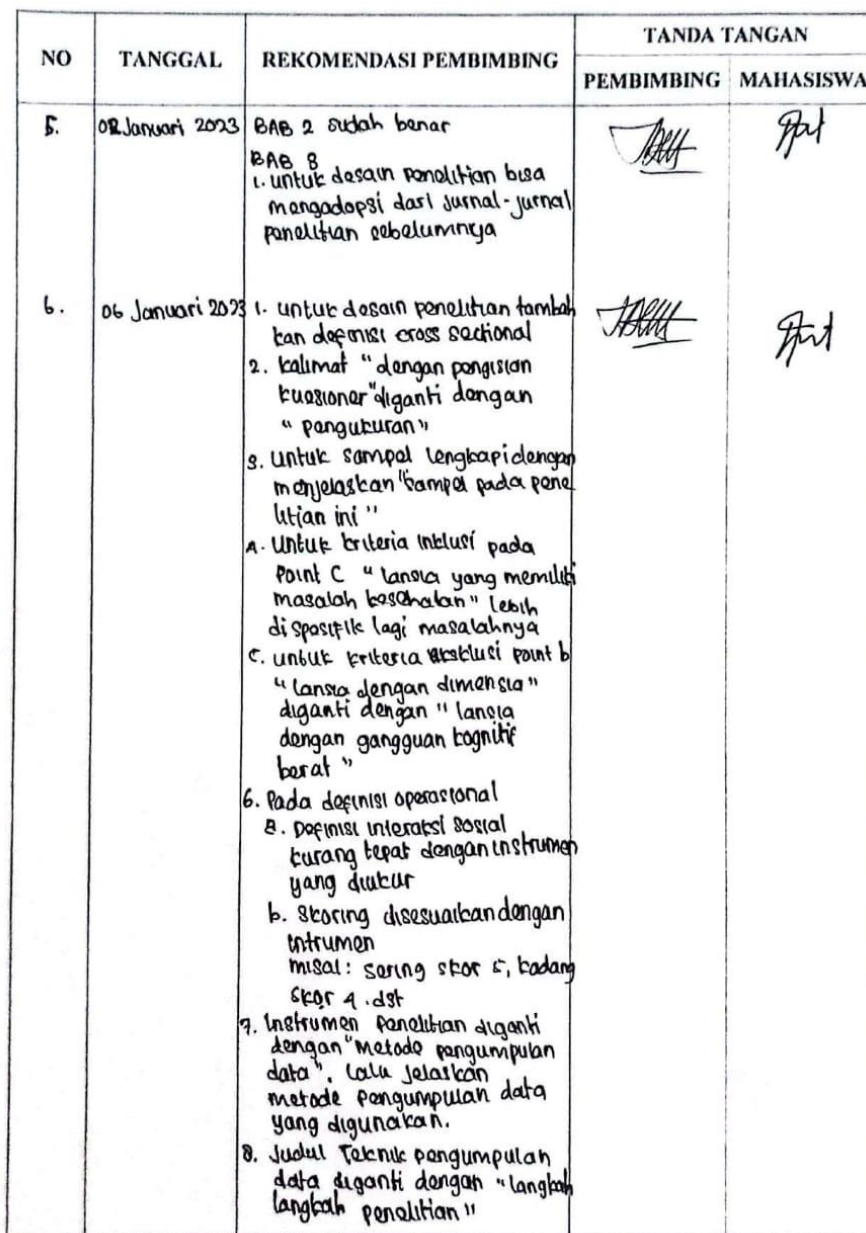 NO TANGGAL REKOMENDASI PEMBIMBING TANDA TANGAN
PEMBIMBING MAHASISWA
5. 02 Januari 2023 BAB 2 sudah benar
BAB 3
1. untuk desain penelitian bisa
mengadopsi dari jurnal-jurnal
penelitian sebelumnya
6. 06 Januari 2023 1. untuk desain penelitian tambah
kan definisi cross sectional
2. kalimat "dengan pengisian
kuesioner" diganti dengan
"pengukuran"
3. untuk sampel lengkapi dengan
menjelaskan "sampel pada pene
litian ini"
4. Untuk kriteria inklusi pada
Point C "lansia yang memiliki
masalah kesehatan" lebih
di spesifik lagi masalahnya
5. untuk kriteria eksklusi point b
"lansia dengan dimensia"
diganti dengan "lansia
dengan gangguan kognitif
berat"
6. Pada definisi operasional
a. Definisi interaksi sosial
kurang tepat dengan instrumen
yang diukur
b. Skoring disesuaikan dengan
intrumen
misal: sering skor 5, kadang
skor 4. dst
7. Instrumen penelitian diganti
dengan "Metode pengumpulan
data", lalu jelaskan
metode pengumpulan data
yang digunakan.
8. Judul Teknik pengumpulan
data diganti dengan "langkah
langkah penelitian"